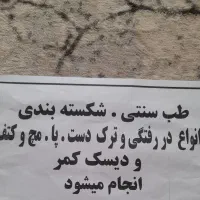 طب سنتی . شکسته بندی
انواع در رفتگی و ترک دست . پا . مچ و کتف
و دیسک کمر
انجام میشود